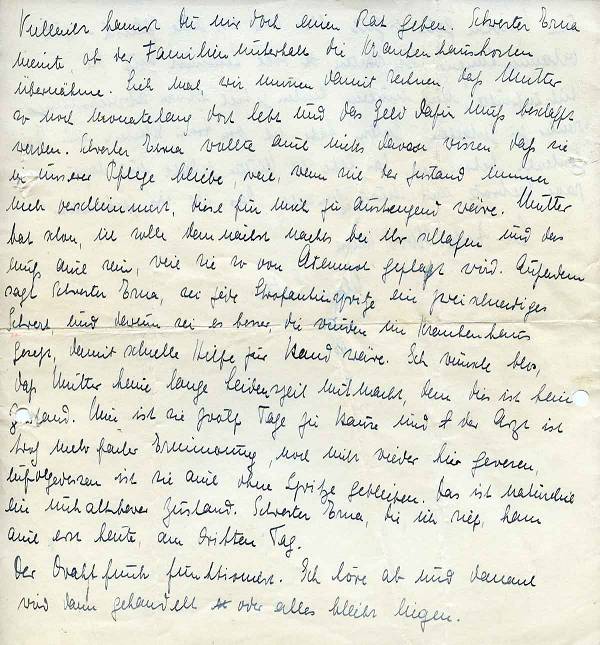 Vielleicht kannst Du mir doch einen Rat geben. Schwester Erna
meinte, ob der Familienunterhalt die Krankenhauskosten
übernähme. Sieh mal, wir müssen damit rechnen, daß Mutter
so noch monatelang dort lebt und das Geld dafür muß beschafft
werden. Schwester Erna wollte auch nichts davon wissen daß sie
in unserer Pflege bliebe, weil, wenn sich der Zustand immer
mehr verschlimmert, diese für mich zu anstrengend wäre. Mutter
bat schon, ich solle demnächst nachts bei ihr schlafen und das
muß auch sein, weil sie so von Atemnot geplagt wird. Außerdem
sagt Schwester Erna, sei jede Strofantinspritze ein zweischneidiges
Schwert und darum sei es besser, die würden im Krankenhaus
gesetzt, damit schnelle Hilfe zur Hand wäre. Ich wünsche blos,
daß Mutter keine lange Leidenszeit mitmacht, denn dies ist kein
Zustand. Nun ist sie zwölf Tage zu Hause und der Arzt ist
trotz mehrfacher Erinnerung, noch nicht wieder hier gewesen,
infolgedessen ist sie auch ohne Spritze geblieben. Das ist natürlich
ein unhaltbarer Zustand. Schwester Erna, die ich rief, kam
auch erst heute, am dritten Tag.
Der Drahtfunk funktioniert. Ich höre ab und danach
wird dann gehandelt oder alles bleibt liegen.